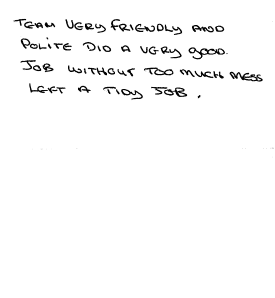 TEAM VERY FRIENDLY AND
POLITE DID A VERY GOOD.
JOB WITHOUT TOO MUCH MESS
LEFT A TIDY JOB.